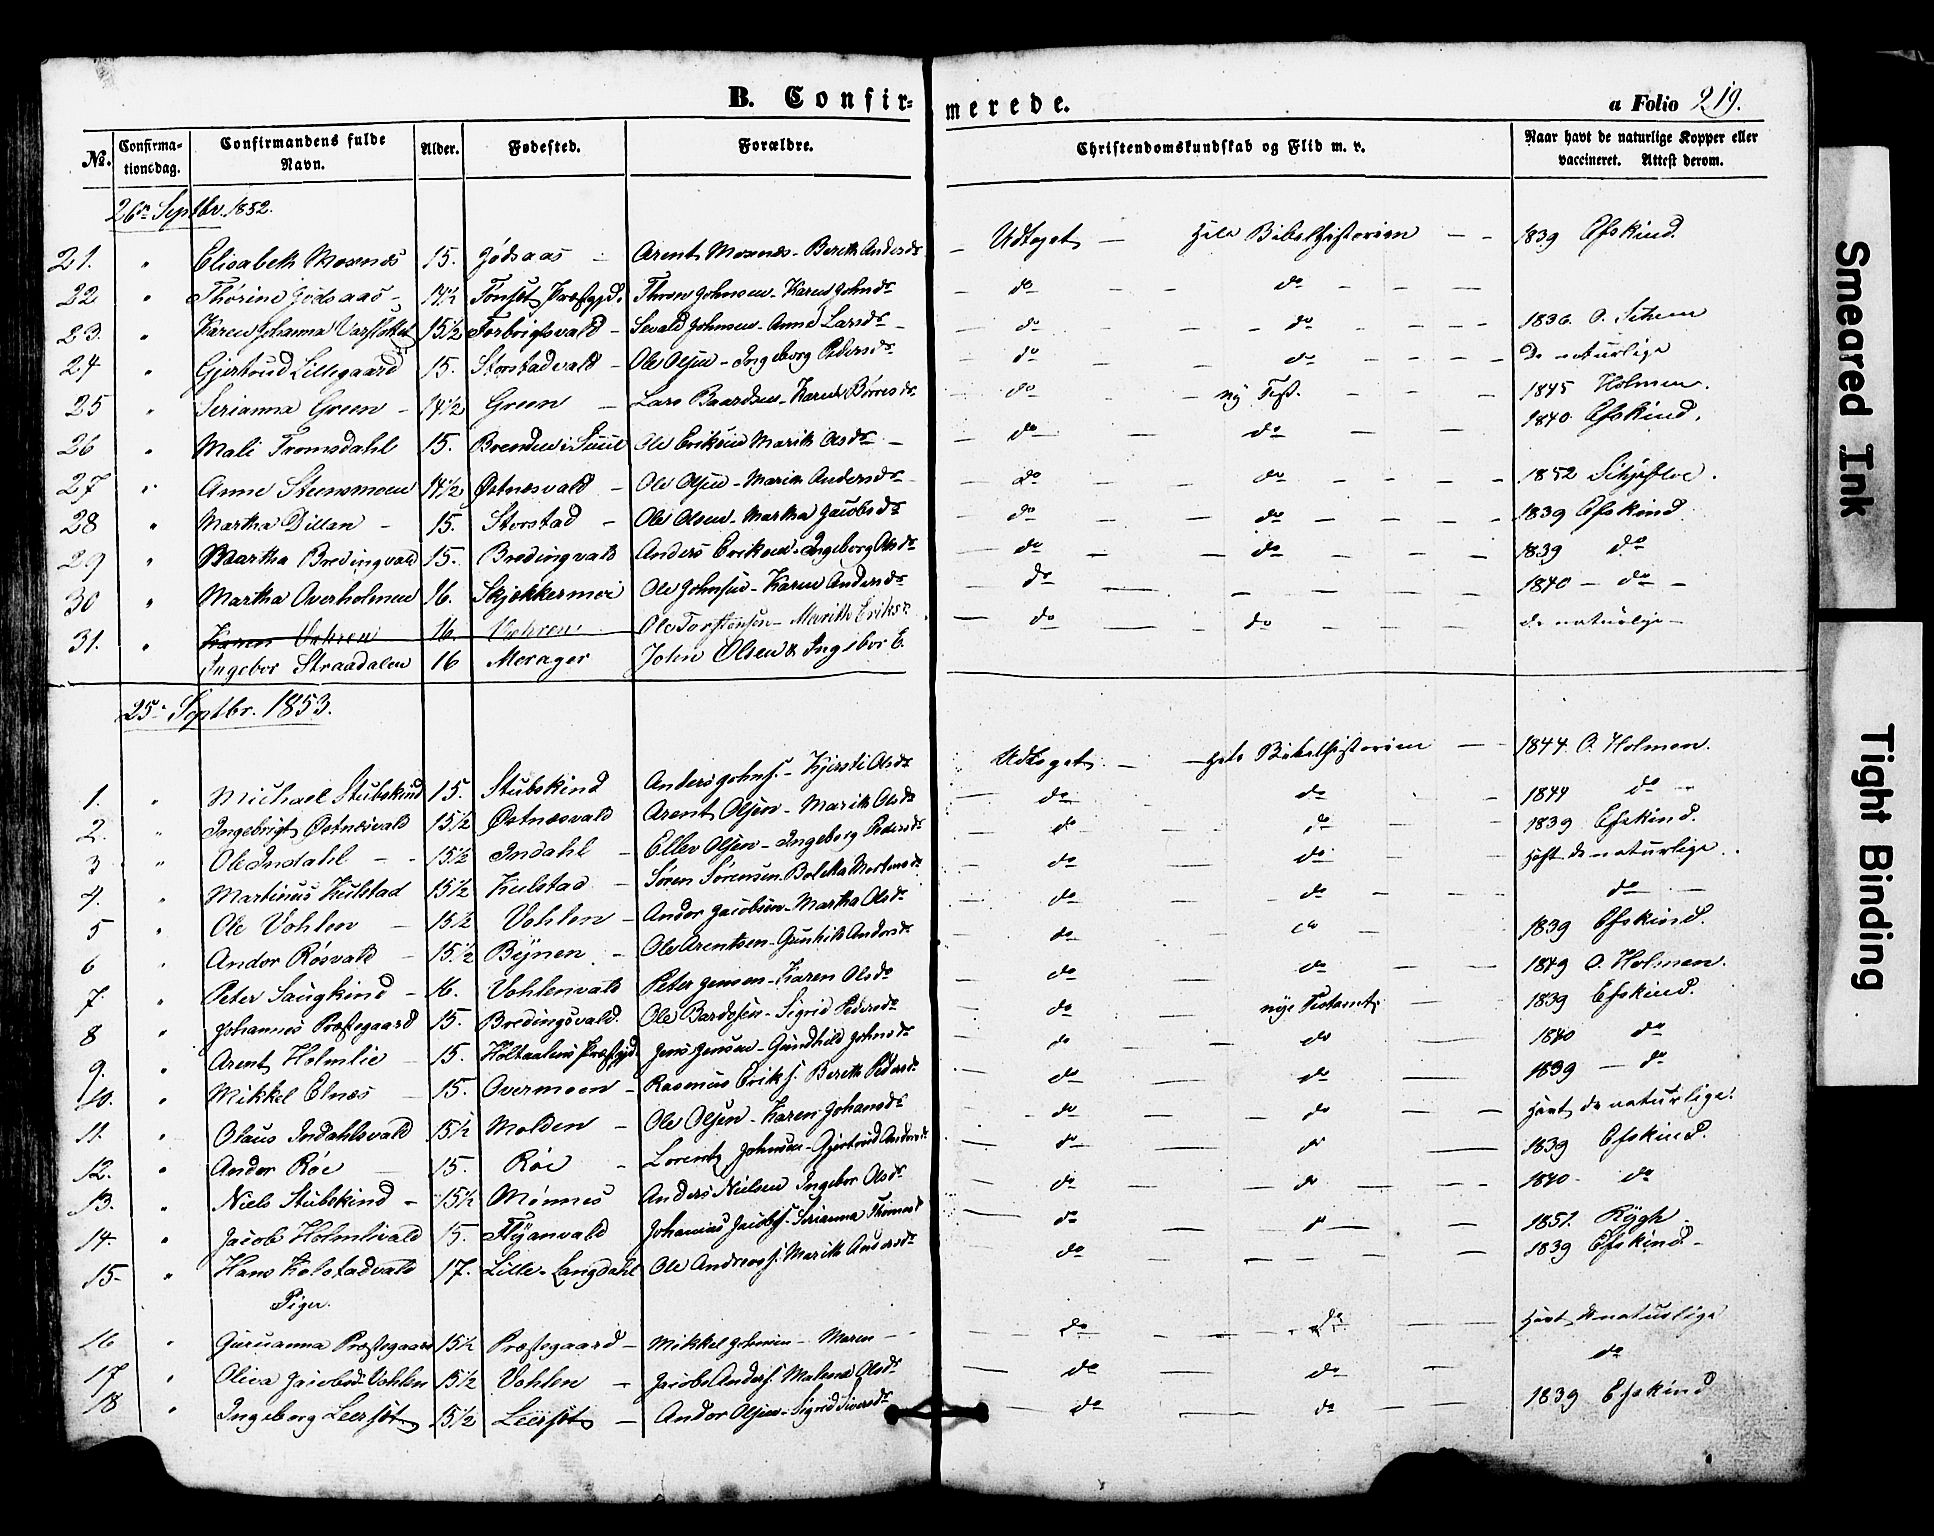 B. Confirmerede. a Folio 219.
No. Confirmationsdag. Confirmandens fulde Navn. Alder. Fødested. Forældre. Christendomskundskab og Flid m. v. Naar havt de naturlige Kopper eller vaccineret. Attest derom.
26de Septbr. 1852.
21. " Elisabeth Moxnes 15. Jødsaas - Arent Moxnes - Bereth Andersdr - Udtoget - Hele Bibelhistorien - - 1839 Efskind.
22 " Thorine Jødsaas - 14½ Tønset Præstgjd. Thron Johnsen - Karen Johnsdr - do - - do - - -
23. " Karen Johanna 15½ Forbrigtsvald - Sevald Johnsen - Anne Larsdr - - do - - do - - - 1836. O. Sehm
24 " Gjertrud Lillegaard 15. Storstadvald - Ole Olsen - Ingeborg Pedersdr - do - - do - - - De naturlige
25 " Serianna Green - 14½ Green - Lars Baardsen - Karen Børresdr - do - - ny Test. - - - 1845 Holmen.
26 " Mali Tromsdahl 15. Brenden i Suul Ole Eriksen Marith Olsdr - - do - - do - - - 1840 Efskind.
27 " Anne Steensmoen 14½ Østnesvald - Ole Olsen - Marith Andersdr - do - - do - - - 1852
28 " Martha Dillan - 15. Storstad - Ole Olsen - Martha Jacobsdr - do - - do - - - 1839 Efskind.
29 " Martha Bredingvald 15. Bredingvald Anders Eriksen - Ingeborg Olsdr - do - - do - - - 1839 do
30 " Martha Overholmen 16. Skjøkkermoe Ole Johnsen - Karen Andersdr - do - - - - - 1840 - do -
31. " Karen Vohren 16 Vohren Ole Torstensen - Marith Eriksdr. - do - - do - - - de naturlige -
Ingebor Straadalen 16 Morager John Olsen & Ingebor E.
25de Septbr. 1853.
1. " Michael Stubskind 15. Stubskind Anders Johns. - Kjersti Olsdr Udtoget. - - hele Bibelhistorien - - 1844. O. Holmen.
2. " Ingebrigt Østnesvald 15½ Østnesvald Arent Olsen - Marith Olsdr - do - - do - 1844 do
3 " Ole Indahl - - 15½ Indahl - Ellev Olsen - Ingeborg Pedersdr - do - - do - 1839 Efskind.
4. " Martinus Kulstad 15½ Kulstad - Søren Sørensen. Boletta Mortensdr - do - - do - - haft de naturlige.
5 " Ole Vohlen - 15½ Vohlen - Andor Jacobsen - Martha Olsdr - do - - do - - - do -
6 " Andor Røsvald - 15½ Bynen - Ole Arentsen - Gunhild Andersdr - do - - do - 1839 Efskind.
7. " Peter Saugkind - 16. Vohlenvald Peter Jensen - Karen Olsdr - do - - do - - - 1849 O. Holmen.
8 " Johannes Præstegaard 15. Bredingsvald. Ole Bardosen - Sigrid Pedersdr - do - - nye Testamt: - 1839 Efskind.
9. " Arent Holmlie - 15. Holtaalens Præstgjd. Jens Jensen - Gundhild Johnsdr - do - - do - 1840 do
10. " Mikkel Elnæs - 15. Overmoen - Rasmus Eriks. Bereth Pedersdr - do - - do - - 1839 - do
11. " Olaus Indahlsvald 15½ Molden - Ole Olsen - Karen Johansdr - do - - do - - havt de naturlige.
12. " Andor Røe - 15. Røe - Lorentz Johnsen - Gjertrud Andersdr - do - - do - - 1839 Efskind.
13. " Niels Stubskind - 15½ Mønnes Anders Nielsen Ingebor Olsdr - do - - do - - - 1840 - do
14. " Jacob Holmlivald 15. Flyanvald Johannes Jacobs. - Serianna Thomasdr - do - - do - - - 1851. Rygh
15 - " Hans Kolstadvald 17. Lille - Langdahl Ole Andreas. Marith Andersdr - do - - - - - 1839 Efskind. -
Piger.
16 " Guruanna Præstegaard 15½ Præstegaard - Mikkel Johnsen - Maren - - - do - - do - - havt de naturlige
17 " Oliva Jacobsdr Vohlen 15½ Vohlen - Jacob Anders. Malena Olsdr - do - - do - do
18 " Ingeborg Leersøt 15½ Leersøt - Andor Olsen - Sigrid Siversdr - do - - do - - 1839 Efskind
Smeared Ink
Tight Binding